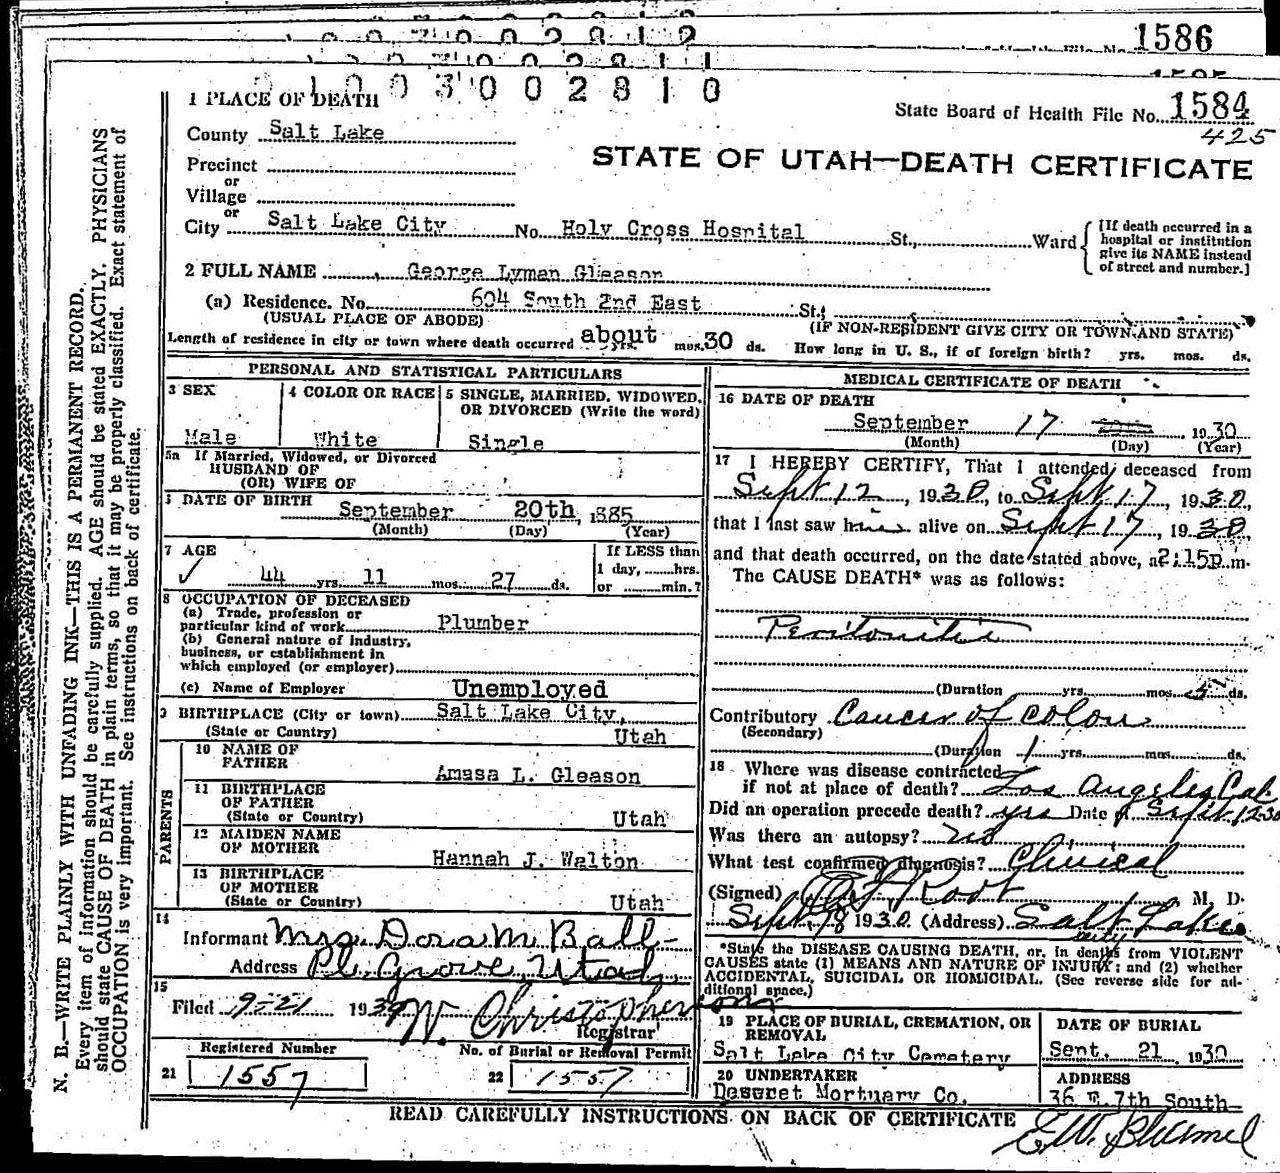 1586
1003002810
1 PLACE OF DEATH
State Board of Health File No. 1584
425
County Salt Lake
STATE OF UTAH—DEATH CERTIFICATE
Precinct
or
Village
or
City Salt Lake City No. Holy Cross Hospital St., Ward
[If death occurred in a hospital or institution give its NAME instead of street and number.]
2 FULL NAME George Lyman Gleason
(a) Residence. No. 604 South 2nd East St.,
(USUAL PLACE OF ABODE) (IF NON-RESIDENT GIVE CITY OR TOWN AND STATE)
Length of residence in city or town where death occurred about yrs. mos. 30 ds. How long in U. S., if of foreign birth? yrs. mos. ds.
PERSONAL AND STATISTICAL PARTICULARS
3 SEX
Male
4 COLOR OR RACE
White
5 SINGLE, MARRIED, WIDOWED, OR DIVORCED (Write the word)
Single
5a If Married, Widowed, or Divorced
HUSBAND OF
(OR) WIFE OF
6 DATE OF BIRTH
September 20th, 1885
(Month) (Day) (Year)
7 AGE
44 yrs. 11 mos. 27 ds.
If LESS than
1 day, hrs.
or min.?
8 OCCUPATION OF DECEASED
(a) Trade, profession or
particular kind of work Plumber
(b) General nature of industry,
business, or establishment in
which employed (or employer)
(c) Name of Employer Unemployed
9 BIRTHPLACE (City or town) Salt Lake City,
(State or Country) Utah
PARENTS
10 NAME OF
FATHER Amasa L. Gleason
11 BIRTHPLACE
OF FATHER
(State or Country) Utah
12 MAIDEN NAME
OF MOTHER Hannah J. Walton
13 BIRTHPLACE
OF MOTHER
(State or Country) Utah
14
Informant Mrs. Dora M. Ball
Address Pl. Grove, Utah
15
Filed 9-21 1930 W. Christopherson
Registrar
Registered Number
21 1557
No. of Burial or Removal Permit
22 1557
MEDICAL CERTIFICATE OF DEATH
16 DATE OF DEATH
September 17 1930
(Month) (Day) (Year)
17 I HEREBY CERTIFY, That I attended deceased from
Sept 12, 1930, to Sept 17, 1930,
that I last saw him alive on Sept 17, 1930,
and that death occurred, on the date stated above, at 2:15p m.
The CAUSE DEATH* was as follows:
Peritonitis
(Duration yrs. mos. 5 ds.
Contributory Cancer of colon
(Secondary)
(Duration 1 yrs. mos. ds.
18 Where was disease contracted
if not at place of death? Los Angeles Cal.
Did an operation precede death? yes Date of Sept 12-30
Was there an autopsy? no
What test confirmed diagnosis? Clinical
(Signed) Root M. D.
Sept 18 1930 (Address) Salt Lake City
*State the DISEASE CAUSING DEATH, or, in deaths from VIOLENT
CAUSES state (1) MEANS AND NATURE OF INJURY; and (2) whether
ACCIDENTAL, SUICIDAL OR HOMICIDAL. (See reverse side for ad-
ditional space.)
19 PLACE OF BURIAL, CREMATION, OR
REMOVAL
Salt Lake City Cemetery
DATE OF BURIAL
Sept. 21 1930
20 UNDERTAKER
Deseret Mortuary Co.
ADDRESS
36 E. 7th South
READ CAREFULLY INSTRUCTIONS ON BACK OF CERTIFICATE
E.W.
N. B.—WRITE PLAINLY WITH UNFADING INK—THIS IS A PERMANENT RECORD.
Every item of information should be carefully supplied. AGE should be stated EXACTLY. PHYSICIANS
should state CAUSE OF DEATH in plain terms, so that it may be properly classified. Exact statement of
OCCUPATION is very important. See instructions on back of certificate.